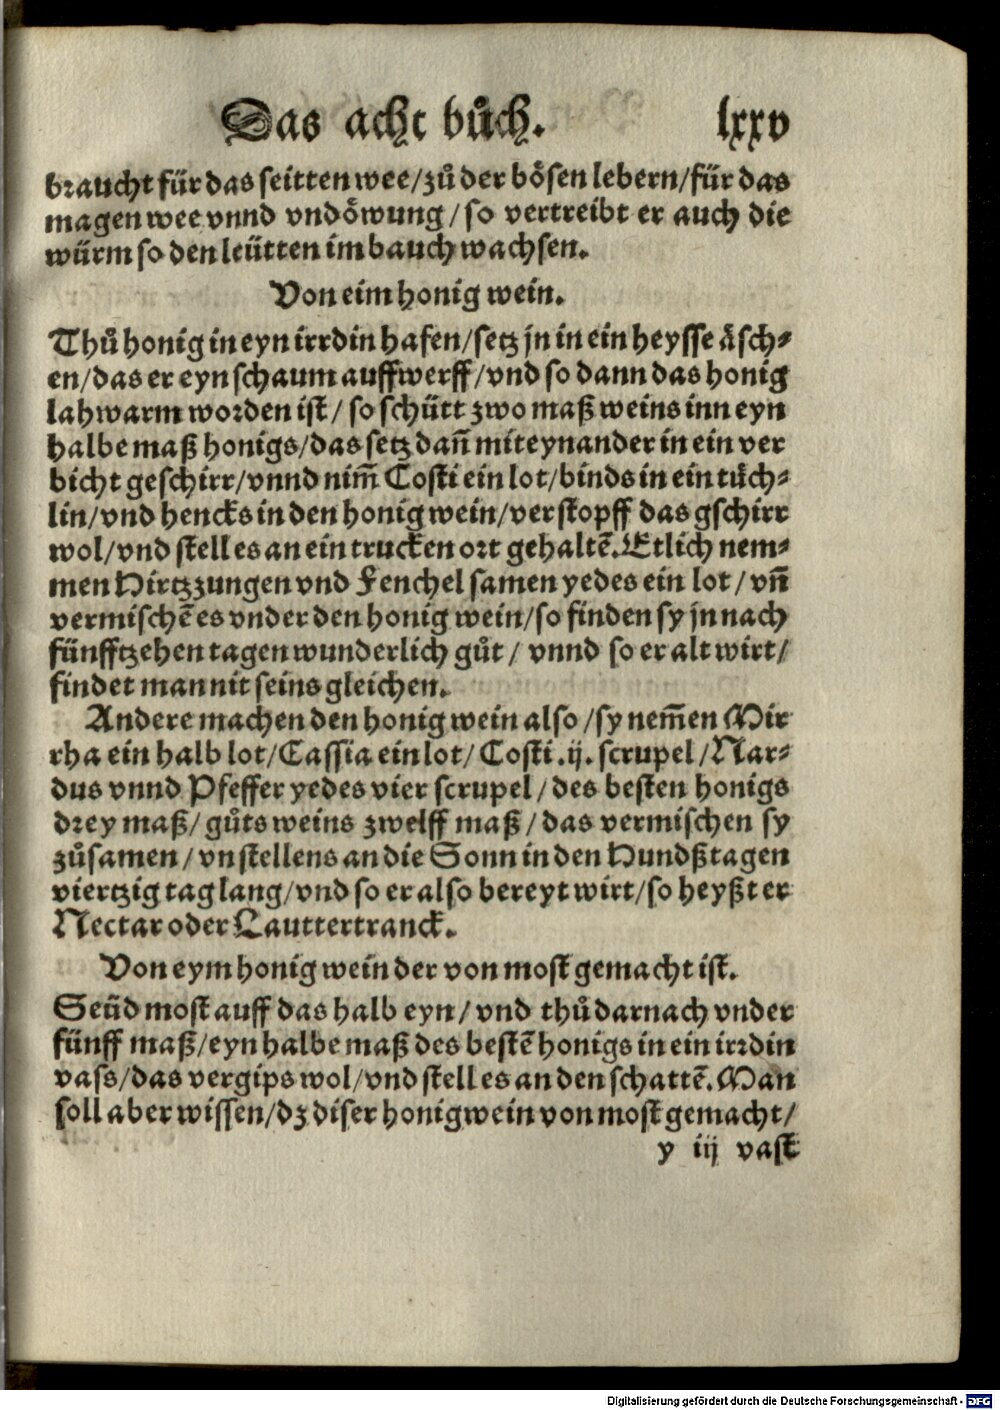 Das acht bůch. lxxv
braucht für das seitten wee/zů der bösen lebern/für das
magen wee vnnd vndöwung/so vertreibt er auch die
würm so den leütten im bauch wachsen.
Von eim honig wein.
Thů honig in eyn irrdin hafen/setz jn in ein heysse äsch⸗
en/das er eyn schaum auffwerff/vnd so dann das honig
lahwarm worden ist/so schütt zwo maß weins inn eyn
halbe maß honigs/das setz dañ mit eynander in ein ver
bicht geschirr/vnnd nim̃ Costi ein lot/binds in ein tüch⸗
lin/vnd hencks in den honig wein/verstopff das gschirr
wol/vnd stell es an ein trucken ort gehaltē. Etlich nem⸗
men Hirtzzungen vnd Fenchel samen yedes ein lot/vñ
vermischē es vnder den honig wein/so finden sy jn nach
fünfftzehen tagen wunderlich gůt/vnnd so er alt wirt/
findet man nit seins gleichen.
Andere machen den honig wein also/sy nem̃en Mir
rha ein halb lot/Cassia ein lot/Costi .ij. scrupel/Nar⸗
dus vnnd Pfeffer yedes vier scrupel/des besten honigs
drey maß/gůts weins zwelff maß/das vermischen sy
zůsamen/vn stellens an die Sonn in den Hundßtagen
viertzig tag lang/vnd so er also bereyt wirt/so heyßt er
Nectar oder Lauttertranck.
Von eym honig wein der von most gemacht ist.
Seüd most auff das halb eyn/vnd thů darnach vnder
fünff maß/eyn halbe maß des bestē honigs in ein irrdin
vass/das vergips wol/vnd stell es an den schattē. Man
soll aber wissen/dz diser honigwein von most gemacht/
y iij vast
Digitalisierung gefördert durch die Deutsche Forschungsgemeinschaft - DFG